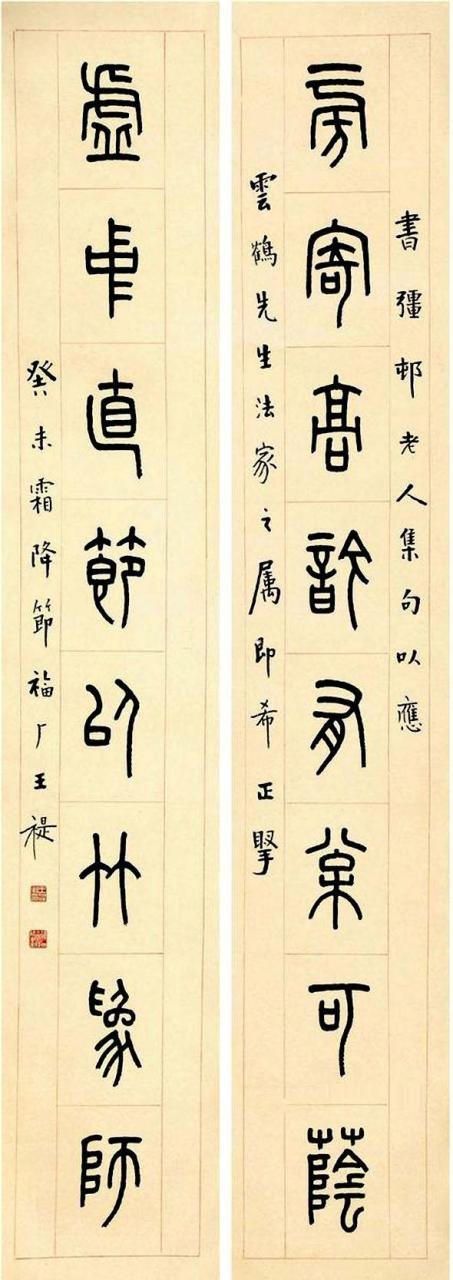 旁寄高訡有棠可蔭
書彊邨老人集句以應
雲鶴先生法家之属即希正掔
虛中直節以竹為師
癸未霜降節福厂王禔